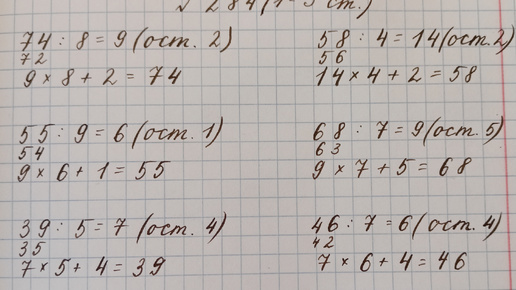 √ 284 (1-3 ст.)
74 : 8 = 9 (ост. 2)
72
9 × 8 + 2 = 74
58 : 4 = 14 (ост. 2)
56
14 × 4 + 2 = 58
55 : 9 = 6 (ост. 1)
54
9 × 6 + 1 = 55
68 : 7 = 9 (ост. 5)
63
9 × 7 + 5 = 68
39 : 5 = 7 (ост. 4)
35
7 × 5 + 4 = 39
46 : 7 = 6 (ост. 4)
42
7 × 6 + 4 = 46